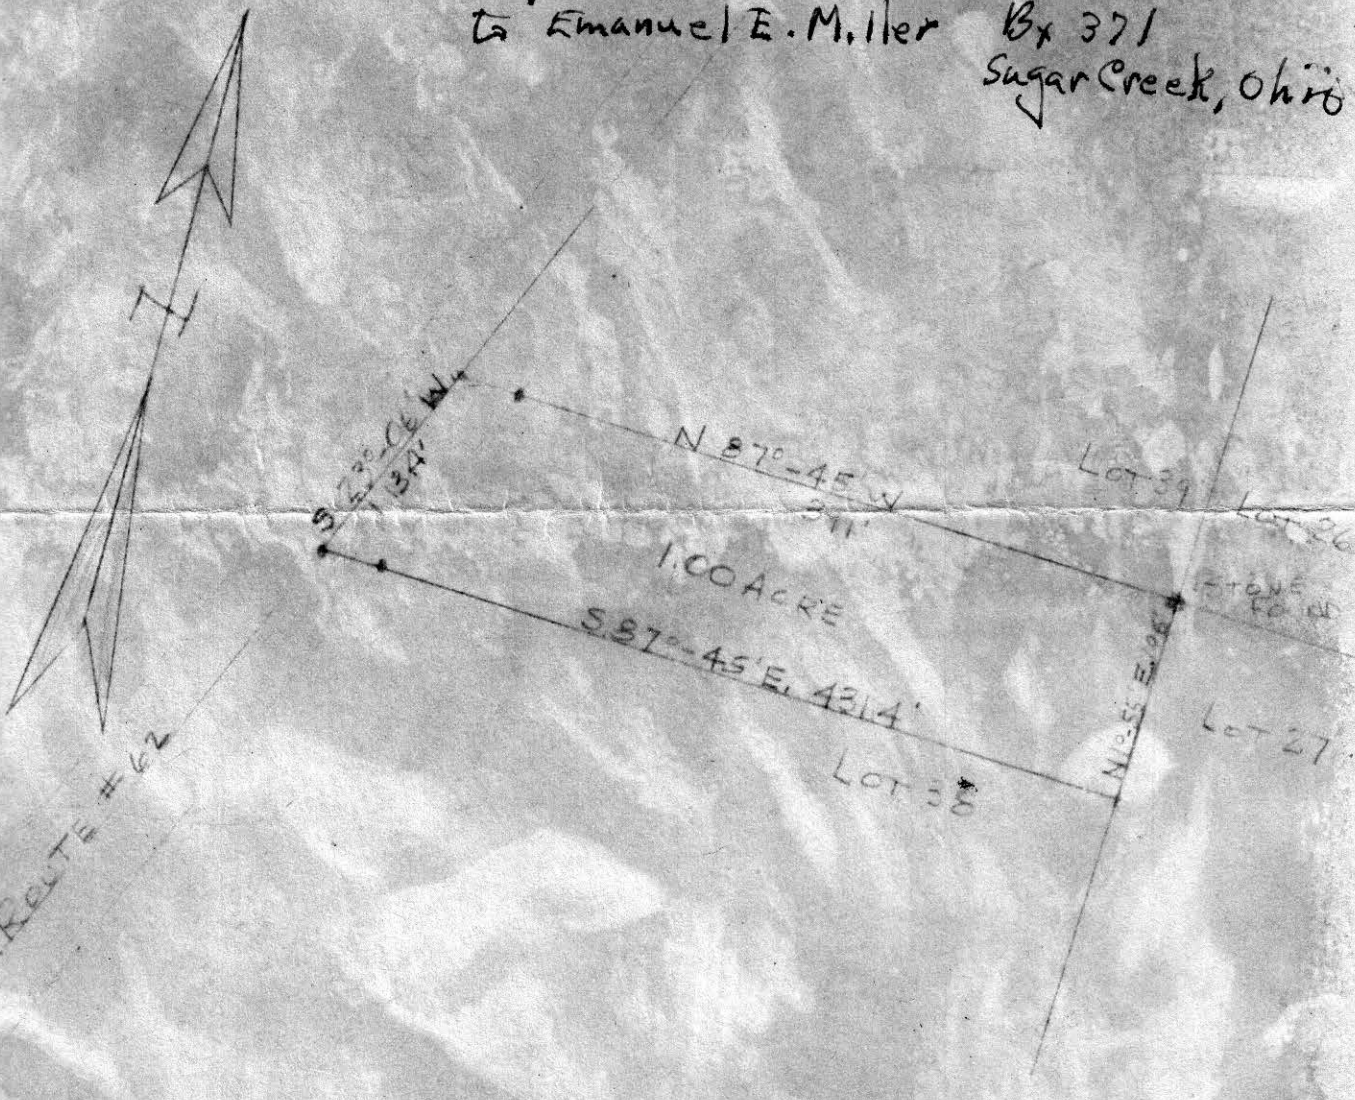 to Emanuel E. Miller Bx 371
Sugar Creek, Ohio
N
S 23°-06' W
113.4'
N 87°-45' W
391'
LOT 39
LOT 26
STONE
FOUND
1.00 ACRE
S 87°-45' E, 431.4'
N 1°-55' E, 106'
LOT 27
LOT 38
ROUTE # 62